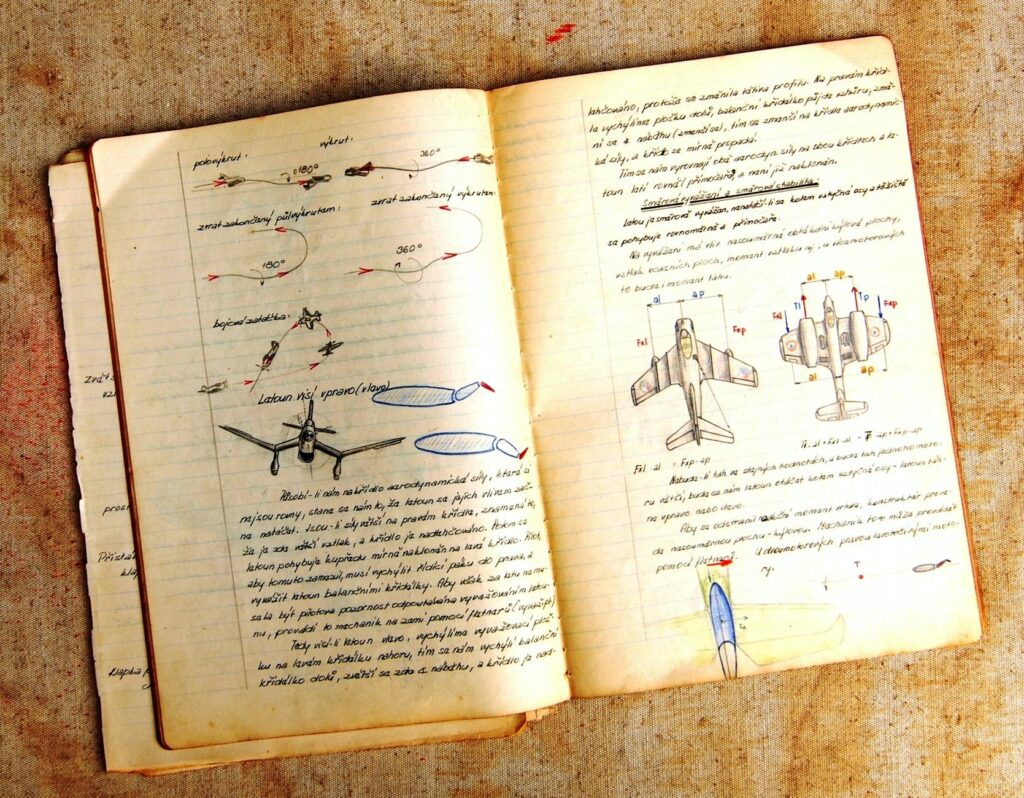 polovýkrut:
výkrut:
180°
360°
zvrat zakončený půlvýkrutem:
zvrat zakončený výkrutem:
180°
360°
bojová zatáčka:
Letoun visí vpravo (vlevo)
Působí-li nám na křídlo aerodynamické síly, které si
nejsou rovny, stane se nám to, že letoun se jejich vlivem zač-
ne natáčet. Jsou-li síly větší na pravém křídle, znamená to,
že je zde větší vztlak, a křídlo je nadlehčováno. Potom se
letoun pohybuje kupředu mírně nakloněn na levé křídlo. Pilot,
aby tomuto zamezil, musí vychýlit řídící páku do prava, a
vyvážit letoun balančními křídélky. Aby však za letu ne mu-
sela být pilotova pozornost odpoutávána vyvažováním letou-
nu, provádí to mechanik na zemi pomocí fletnerů (vyvážek)
Tedy visí-li letoun vlevo, vychýlíme vyvažovací ploš-
ku na levém křidélku nahoru, tím se nám vychýlí balanční
křidélko dolů, zvětší se zde α náběhu, a křídlo je nad-
lehčováno, protože se změnila tětiva profilu. Na pravém kříd-
le vychýlíme plošku dolů, balanční křidélko půjde vzhůru, změ-
ní se α náběhu (zmenší se), tím se zmenší na křídle aerodynamic-
ká síly, a křídlo se mírně propadá.
Tím se nám vyrovnají obě aerodyn. síly na obou křídlech a le-
toun letí rovně i přímočaře, a není již nakloněn.
Směrové vyvážení a směrová stabilita:
Letoun je směrově vyvážen, nenatáčí-li se kolem svislé osy a těžiště
se pohybuje rovnoměrně a přímočaře.
Na vyvážení má vliv nesouměrné obtékání kýlové plochy,
vztlak ocasních ploch, moment vztlaku aj., u vícemotorových
to bude i moment tahu.
al ap
Fxl Fxp
al ap
Fxl Tl Tp Fxp
al ap
Fxl · al = Fxp · ap
Tl · al + Fxl · al = Tp · ap + Fxp · ap
Nebude-li tah ve stejných hodnotách, a bude tah jednoho moto-
ru větší, bude se nám letoun otáčet kolem svislé osy - letoun táh-
ne vpravo nebo vlevo.
Aby se odstranil reakční moment vrtule, konstruktér prove-
de nesouměrnou plochu - kýlovou. Mechanik to může provádět
pomocí fletnerů. U dvoumotorových, pravou a levotočivými moto-
ry.
T
Zvrát
prost
Přistá
klap
Klapka p